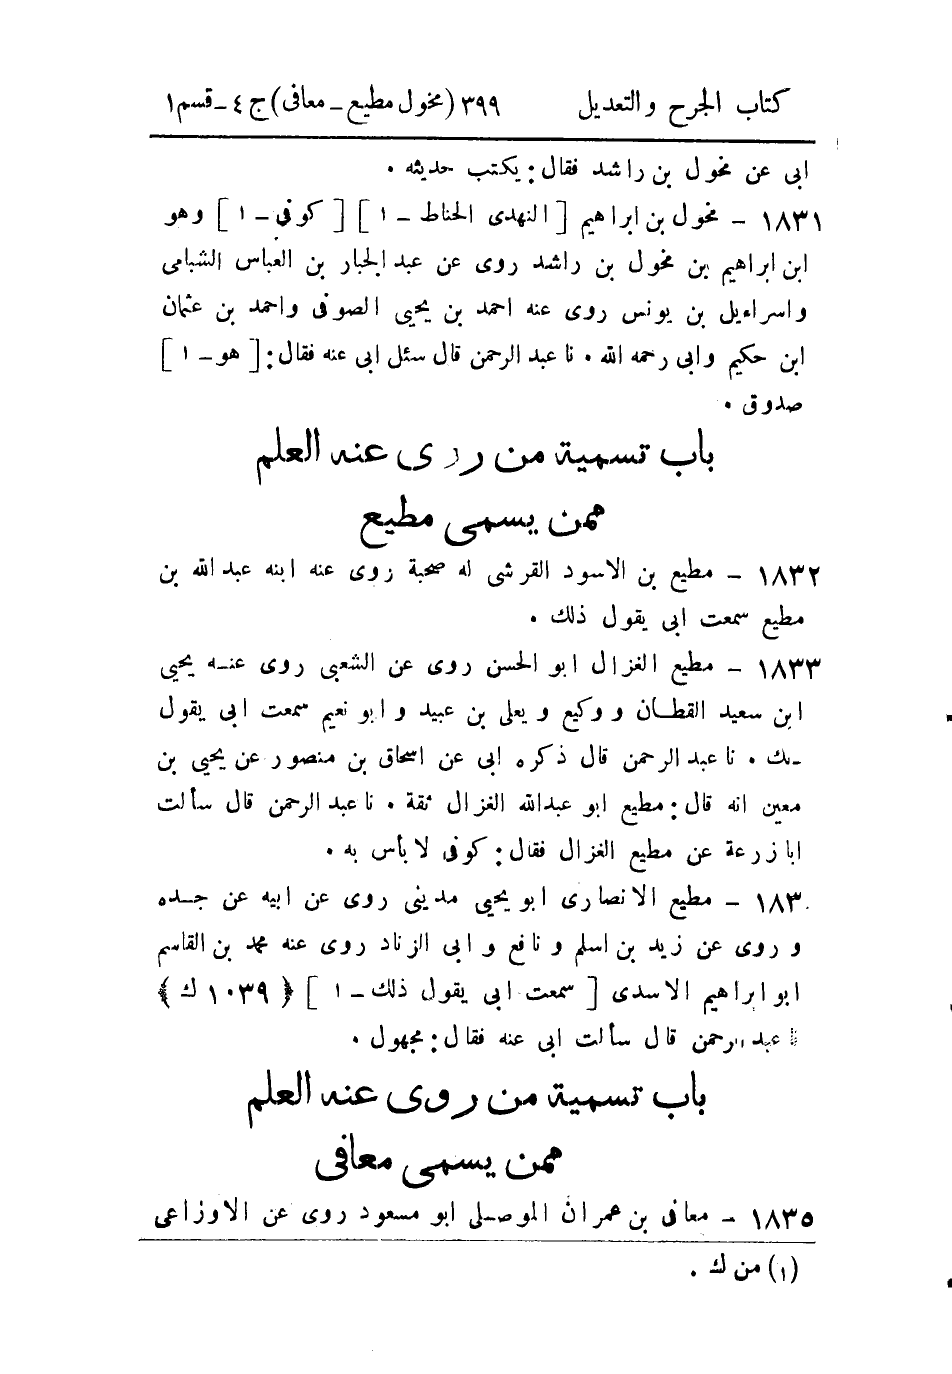 كتاب الجرح والتعديل ٣٩٩ (مخول مطيع ـ معافى) ج ٤ ـ قسم ١
ابى عن مخول بن راشد فقال : يكتب حديثه .
١٨٣١ - مخول بن ابراهيم [ النهدى الحناط - ١ ] [ كوفى - ١ ] وهو
ابن ابراهيم بن مخول بن راشد روى عن عبد الجبار بن العباس الشبامى
واسراءيل بن يونس روى عنه احمد بن يحيى الصوفى واحمد بن عثمان
ابن حكيم وابى رحمه الله . نا عبد الرحمن قال سئل ابى عنه فقال : [ هو - ١ ]
صدوق .
باب تسمية من روى عنه العلم
ممن يسمى مطيع
١٨٣٢ - مطيع بن الاسود القرشى له صحبة روى عنه ابنه عبد الله بن
مطيع سمعت ابى يقول ذلك .
١٨٣٣ - مطيع الغزال ابو الحسن روى عن الشعبى روى عنه يحيى
ابن سعيد القطان ووكيع ويعلى بن عبيد وابو نعيم سمعت ابى يقول
. نا عبد الرحمن قال ذكره ابى عن اسحاق بن منصور عن يحيى بن
معين انه قال : مطيع ابو عبد الله الغزال ثقة . نا عبد الرحمن قال سألت
ابا زرعة عن مطيع الغزال فقال : كوفى لا بأس به .
١٨٣ - مطيع الانصارى ابو يحيى مدينى روى عن ابيه عن جده
وروى عن زيد بن اسلم ونافع وابى الزناد روى عنه محمد بن القاسم
ابو ابراهيم الاسدى [ سمعت ابى يقول ذلك - ١ ] ﴿ ١٠٣٩ ك ﴾
نا عبد الرحمن قال سألت ابى عنه فقال : مجهول .
باب تسمية من روى عنه العلم
ممن يسمى معافى
١٨٣٥ - معافى بن عمران الموصلى ابو مسعود روى عن الاوزاعى
(١) من ك .